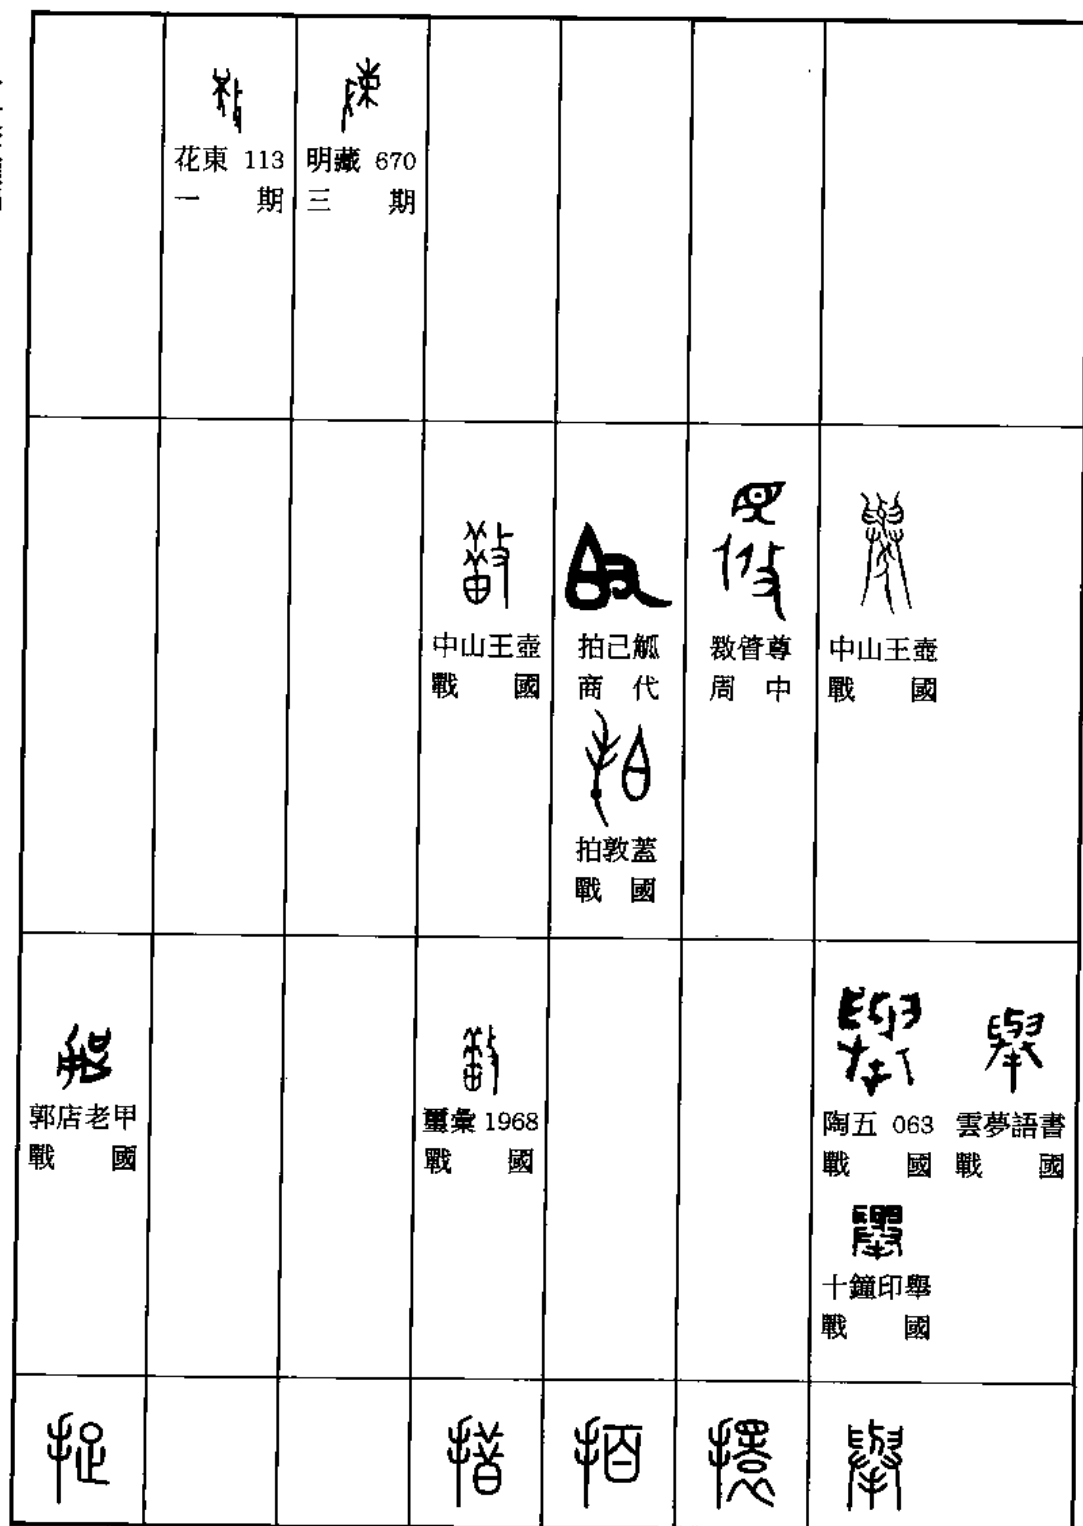 花東 113
一期
明藏 670
三期
中山王壺
戰國
拍己觚
商代
拍敦蓋
戰國
周中
中山王壺
戰國
郭店老甲
戰國
璽彙 1968
戰國
陶五 063
戰國
雲夢語書
戰國
十鐘印舉
戰國
捉
措
擐